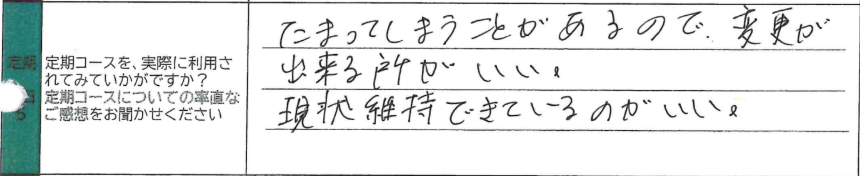 定期
5
定期コースを、実際に利用さ
れてみていかがですか?
定期コースについての率直な
ご感想をお聞かせください
たまってしまうことがあるので、変更が
出来る所がいい。
現状維持できているのがいい。